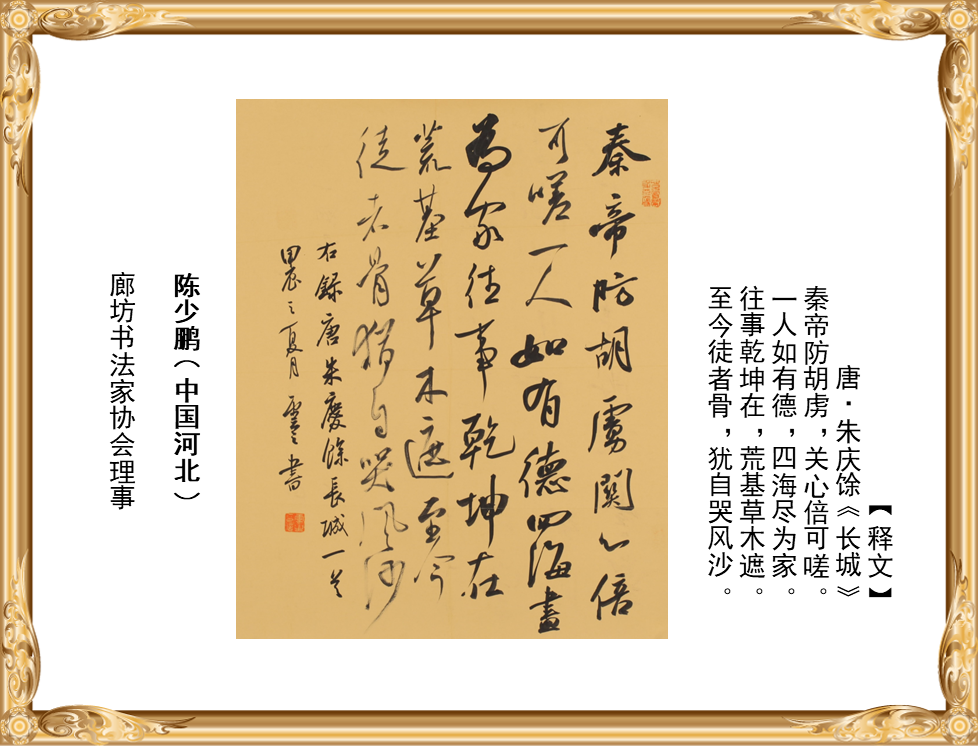 【释文】
唐·朱庆馀《长城》
秦帝防胡虏，关心倍可嗟。
一人如有德，四海尽为家。
往事乾坤在，荒基草木遮。
至今徒者骨，犹自哭风沙。
秦帝防胡虜關心倍
可嗟一人如有德四海盡
為家往事乾坤在
荒基草木遮至今
徒者骨猶自哭風沙
右録唐朱慶餘長城一首
甲辰之夏月書
陈少鹏（中国河北）
廊坊书法家协会理事